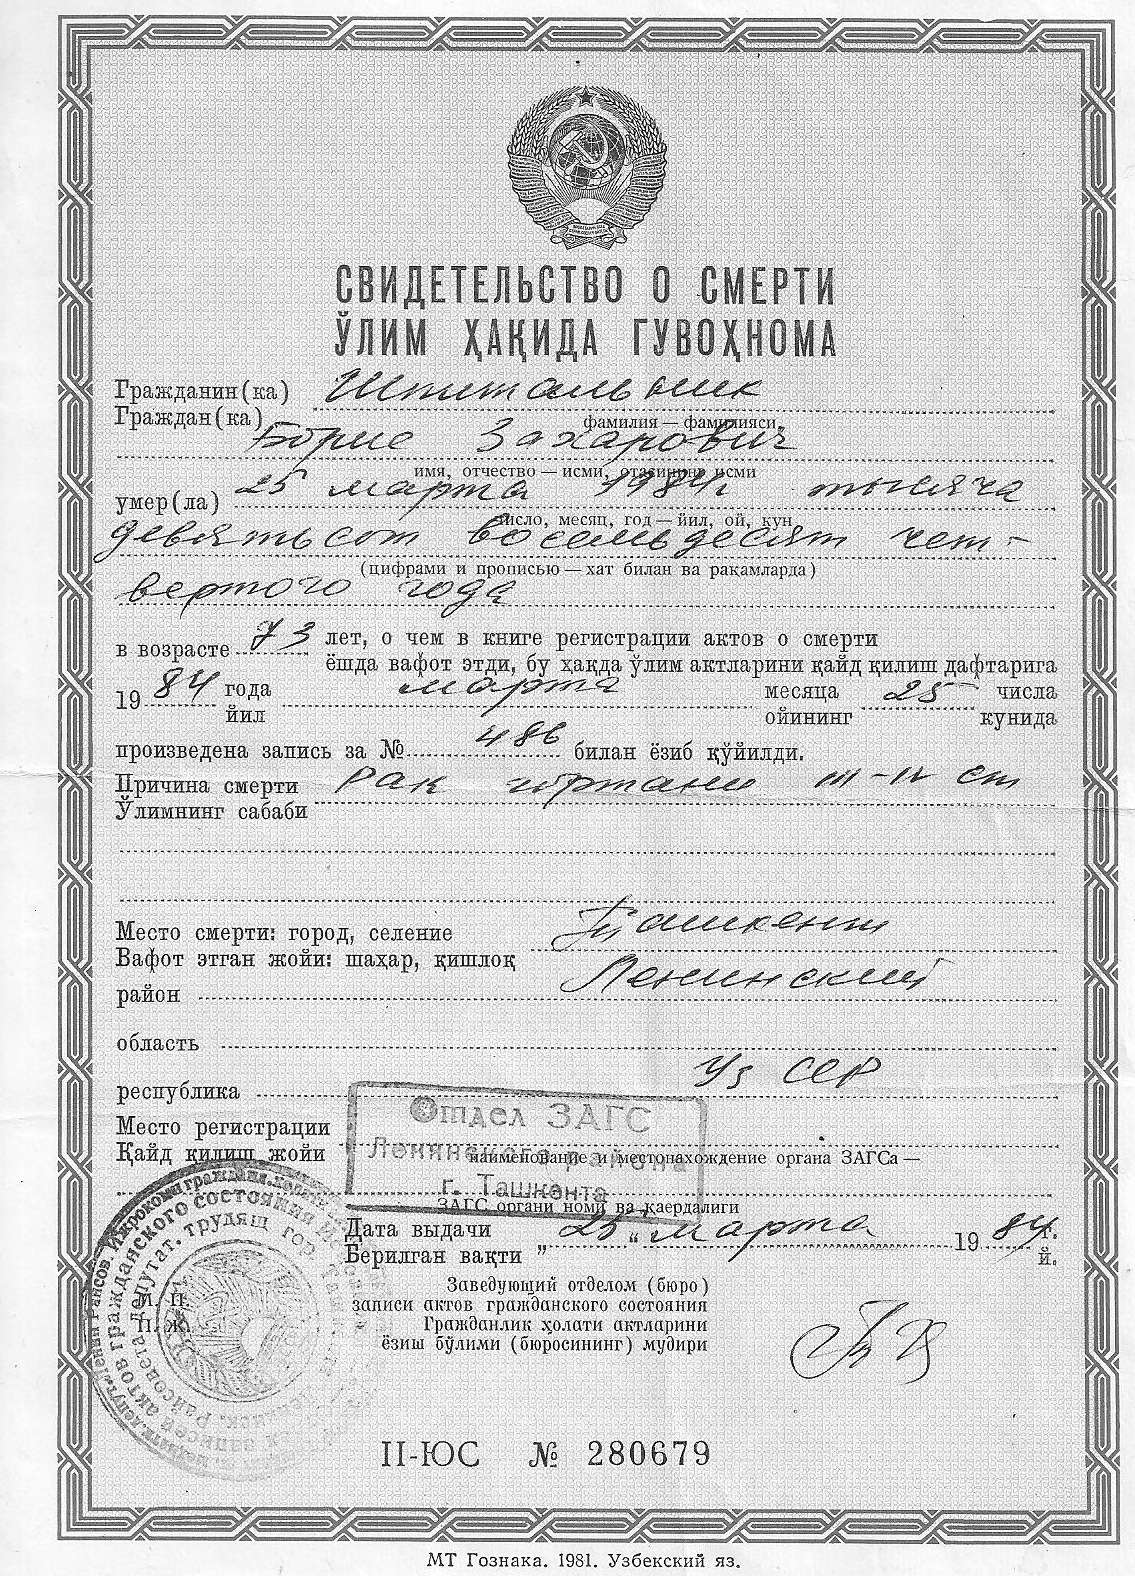 СВИДЕТЕЛЬСТВО О СМЕРТИ
ЎЛИМ ҲАҚИДА ГУВОҲНОМА
Гражданин(ка) Шпитальник
Граждан(ка)
фамилия — фамилияси,
Борис Захарович
имя, отчество — исми, отасининг исми
умер(ла) 25 марта 1984г тысяча
число, месяц, год — йил, ой, кун
девятьсот восемьдесят чет-
(цифрами и прописью — хат билан ва рақамларда)
вертого года
в возрасте 73 лет, о чем в книге регистрации актов о смерти
ёшда вафот этди, бу ҳақда ўлим актларини қайд қилиш дафтарига
19 84 года марта месяца 25 числа
йил ойининг кунида
произведена запись за № 486 билан ёзиб қўйилди.
Причина смерти Рак гортани III-IV ст
Ўлимнинг сабаби
Место смерти: город, селение Ташкент
Вафот этган жойи: шаҳар, қишлоқ
район Ленинский
область
республика Уз ССР
Отдел ЗАГС
Место регистрации
Қайд қилиш жойи
Ленинского района
наименование и местонахождение органа ЗАГСа —
г. Ташкента
ЗАГС органи номи ва қаердалиги
Дата выдачи „ 25 “ марта 19 84 г.
Берилган вақти й.
Заведующий отделом (бюро)
записи актов гражданского состояния
М. П.
Гражданлик ҳолати актларини
П. Ж.
ёзиш бўлими (бюросининг) мудири
II-ЮС № 280679
МТ Гознака. 1981. Узбекский яз.